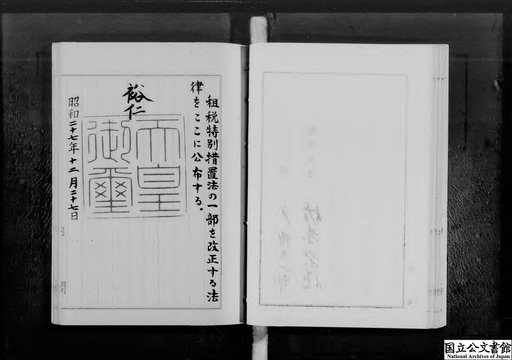 租税特別措置法の一部を改正する法
律をここに公布する。
裕仁
天皇
御璽
昭和二十七年十二月二十七日
国立公文書館
National Archives of Japan